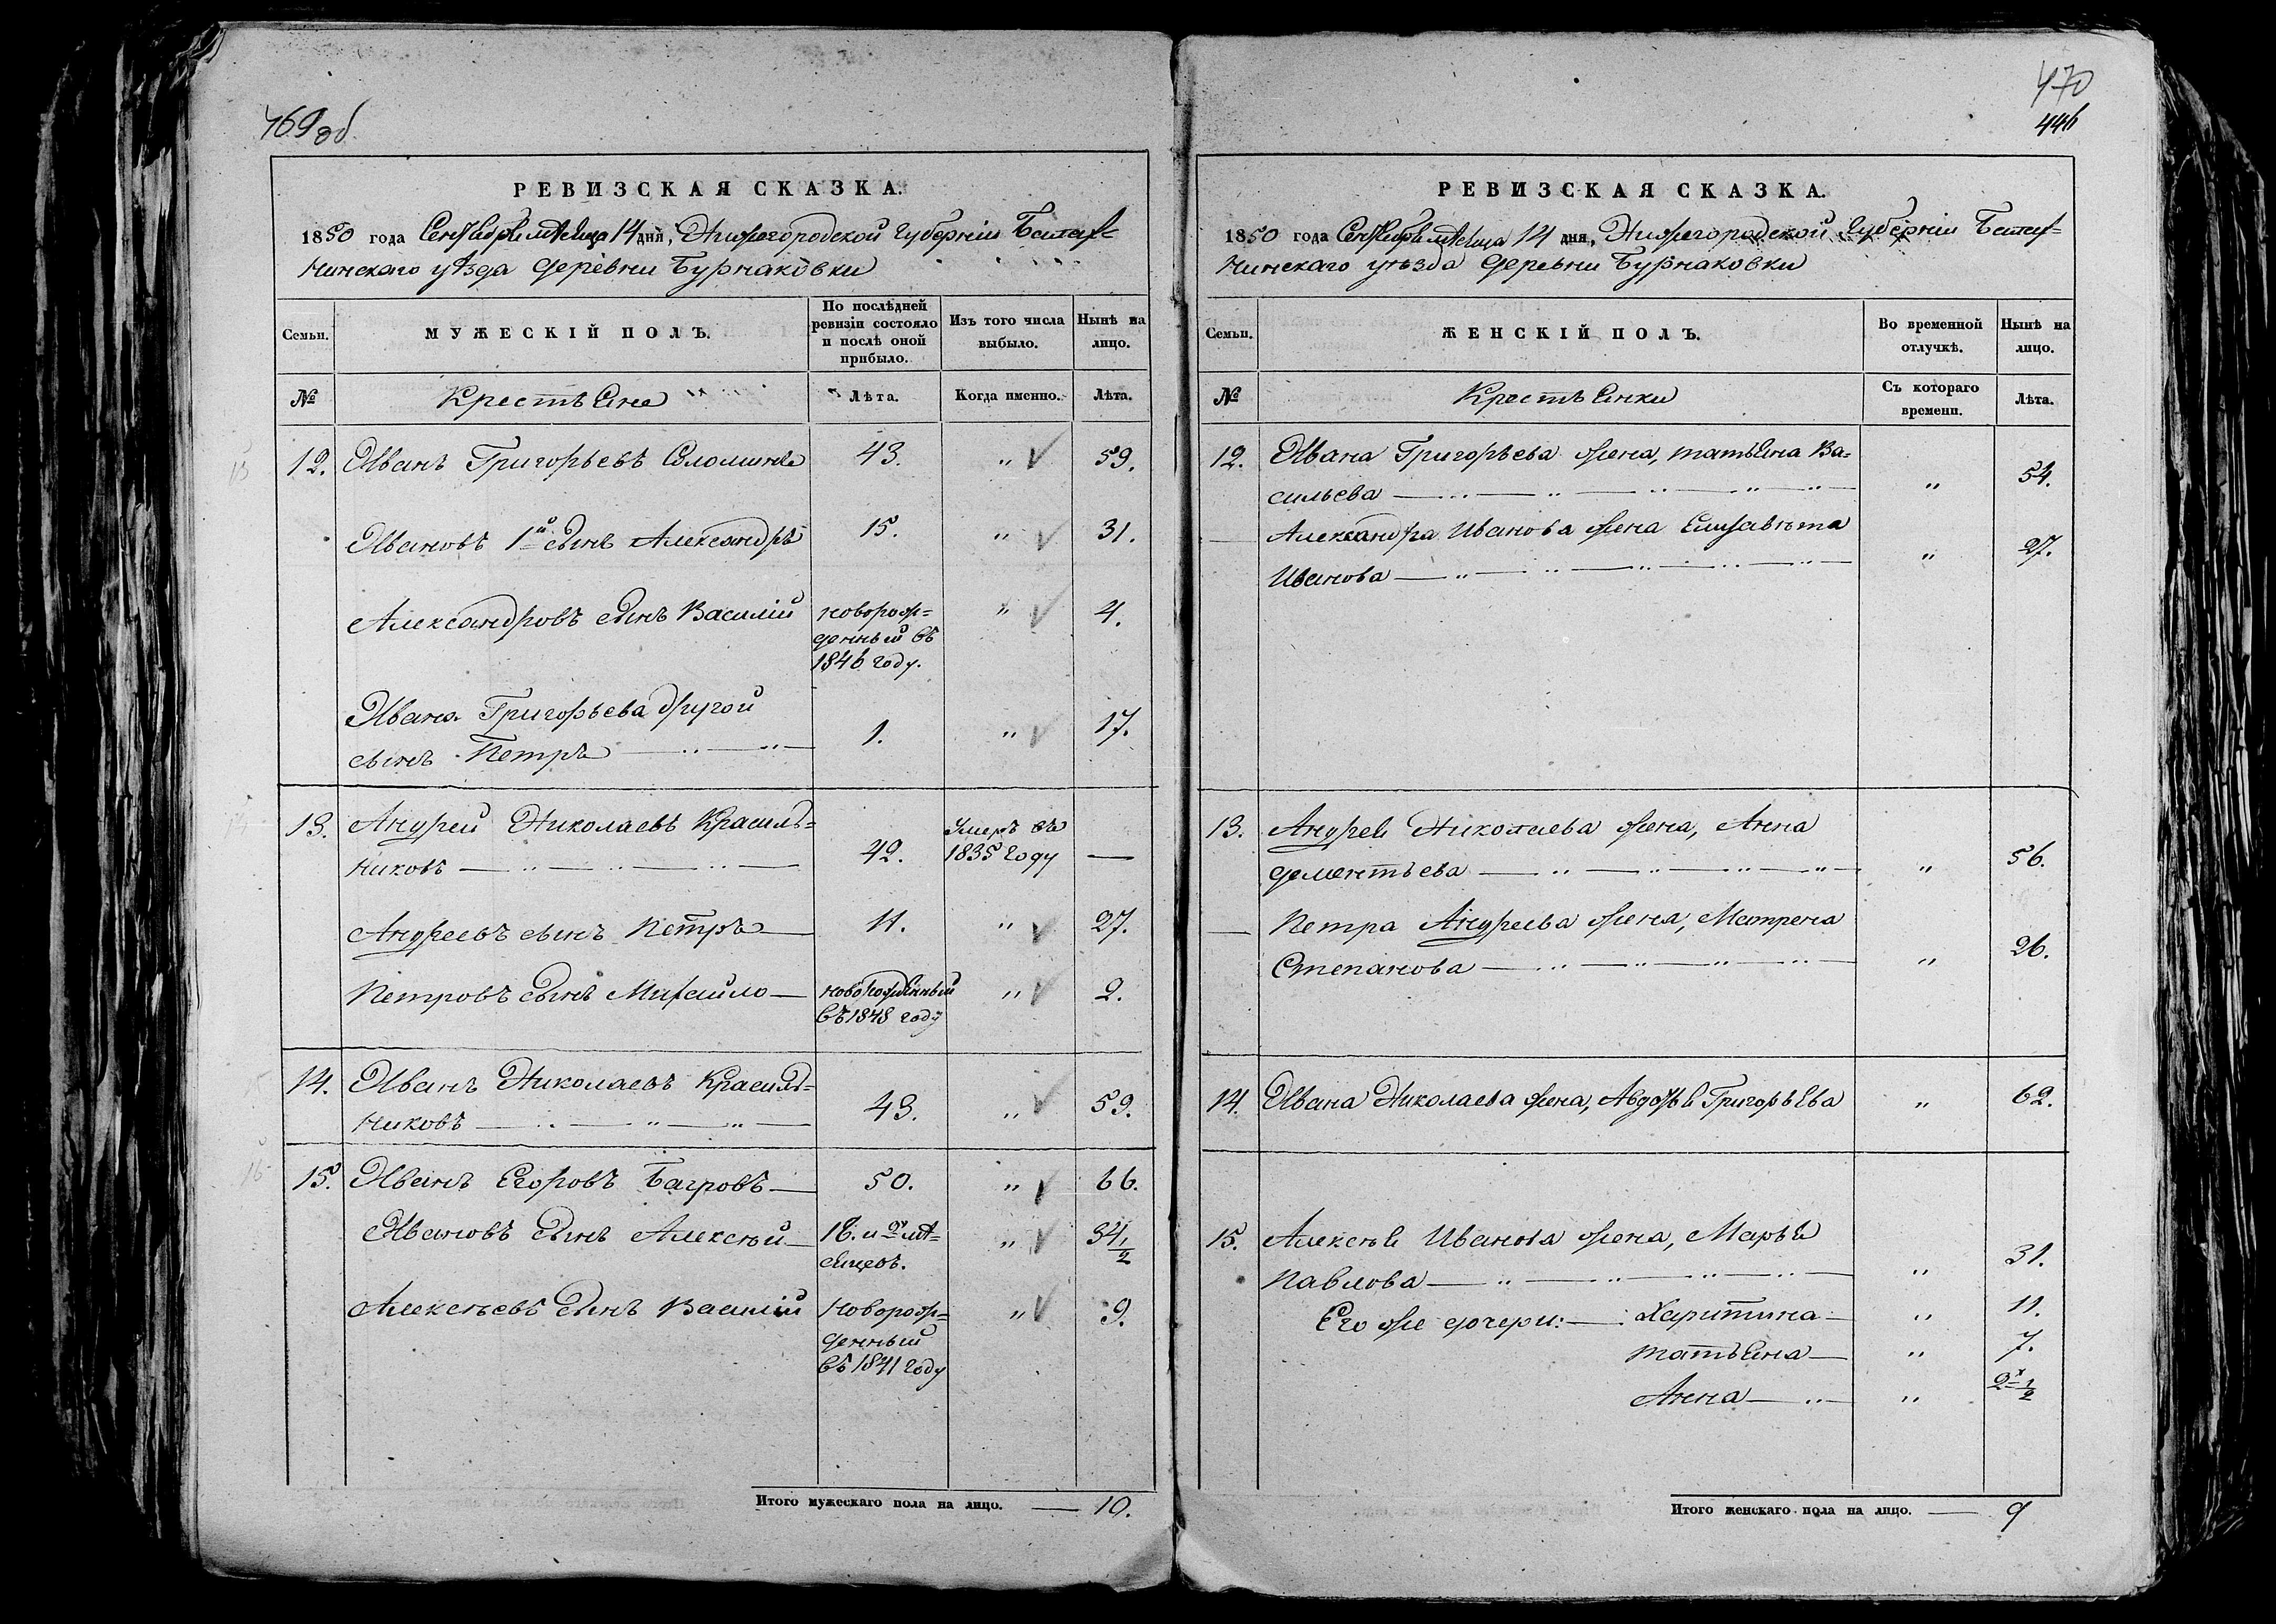 469об.
РЕВИЗСКАЯ СКАЗКА.
1850 года Сентября мѣсяца 14 дня, Нижегородской Губерніи Балах-
нинскаго уѣзда деревни Бурнаковки
Семьи.
МУЖЕСКІЙ ПОЛЪ.
По послѣдней ревизіи состояло и послѣ оной прибыло.
Изъ того числа выбыло.
Нынѣ на лицо.
№
Крестьяне
Лѣта.
Когда именно.
Лѣта.
12. Иванъ Григорьевъ 43. " 59.
Ивановъ 1й сынъ Александръ 15. " 31.
Александровъ сынъ Василій новорож= " 4.
денный въ
1846 году.
Ивана Григорьева другой
сынъ Петръ 1. " 17.
13. Андрей Николаевъ Красиль= Умеръ въ
никовъ 42. 1835 году —
Андреевъ сынъ Петръ 11. " 27.
Петровъ сынъ Михайло новорожденный " 2.
въ 1848 году
14. Иванъ Николаевъ Красиль=
никовъ 43. " 59.
15. Иванъ Егоровъ Багровъ 50. " 66.
Ивановъ сынъ Алексѣй 18. и " 34 1/2
сяцовъ.
Алексѣевъ сынъ Василій Новорож= " 9.
денный
въ 1841 году
Итого мужескаго пола на лицо. — 10.
470
446
РЕВИЗСКАЯ СКАЗКА.
1850 года Сентября мѣсяца 14 дня, Нижегородской Губерніи Балах=
нинскаго уѣзда деревни Бурнаковки
Семьи.
ЖЕНСКІЙ ПОЛЪ.
Во временной отлучкѣ.
Нынѣ на лицо.
№
Крестьянки
Съ котораго времени.
Лѣта.
12. Ивана Григорьева жена, татьяна Ва=
сильева " 54.
Александра Иванова жена Елизавѣта
Иванова " 27.
13. Андрея Николаева жена, Анна
дементьева " 56.
Петра Андреева жена, Матрена
Степанова " 26.
14. Ивана Николаева жена, Авдотья Григорьева " 62.
15. Алексѣя Иванова жена, Марья
Павлова " 31.
Его же дочери: Харитина " 11.
татьяна " 7.
Анна " 2 1/2
Итого женскаго пола на лицо. — 9